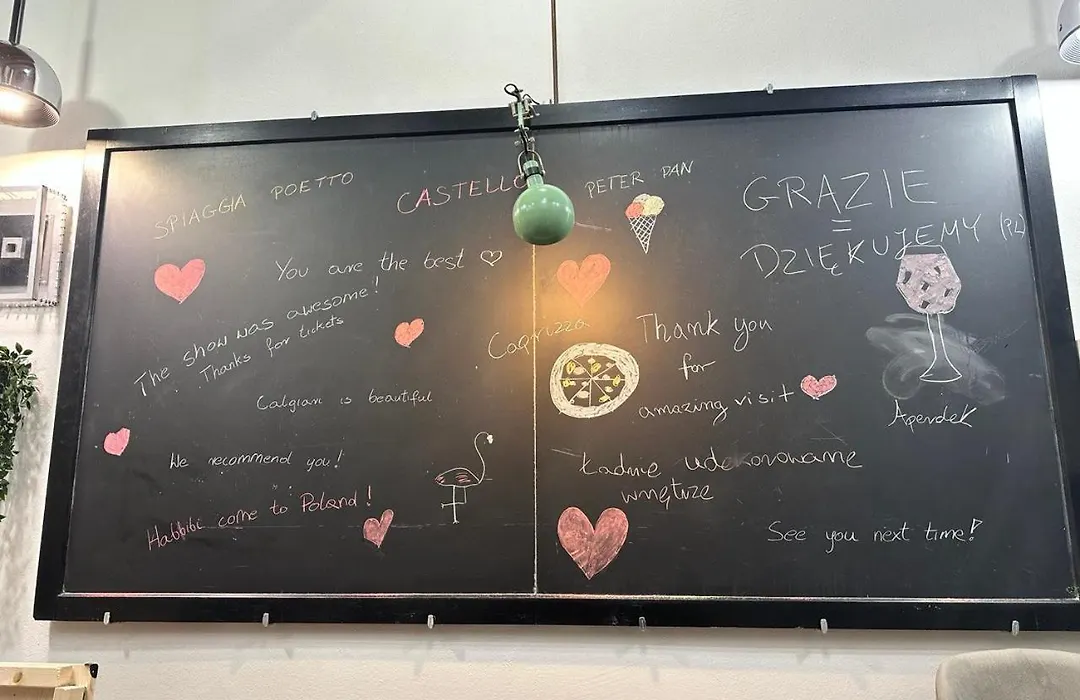 SPIAGGIA POETTO
CASTELLO
PETER PAN
GRAZIE
=
DZIĘKUJEMY (PL)
You are the best ♡
The show was awesome!
Thanks for tickets
Caprizza
Thank you
for
amazing visit
Calgiari is beautiful
Aperolek
We recommend you!
Ładnie udekorowane
wnętrze
Habbibi come to Poland!
See you next time!